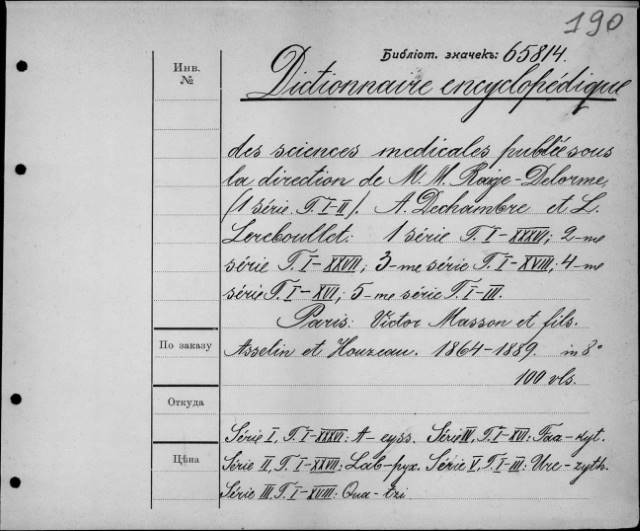 190
Библіот. значекъ: 65814.
Инв.
№
Dictionnaire encyclopédique
des sciences medicales publiée sous
la direction de M. M. Raige-Delorme
(1 série T. I-II). A. Dechambre et L.
Lereboullet: 1 série T. I-XXXVI; 2-me
série T. I-XXVII; 3-me série T. I-XVIII; 4-me
série T. I-XVI; 5-me série T. I-III.
Paris: Victor Masson et fils.
По заказу
Asselin et Houzeau. 1864-1889. in 8°
100 vls.
Откуда
Série I, T. I-XXXVI: A-eyss. Série IV, T. I-XVI: Faa-zyt.
Цѣна
Série II, T. I-XXVII: Lab-pyx. Série V, T. I-III: Ure-zyth.
Série III T. I-XVIII: Qua-tzi